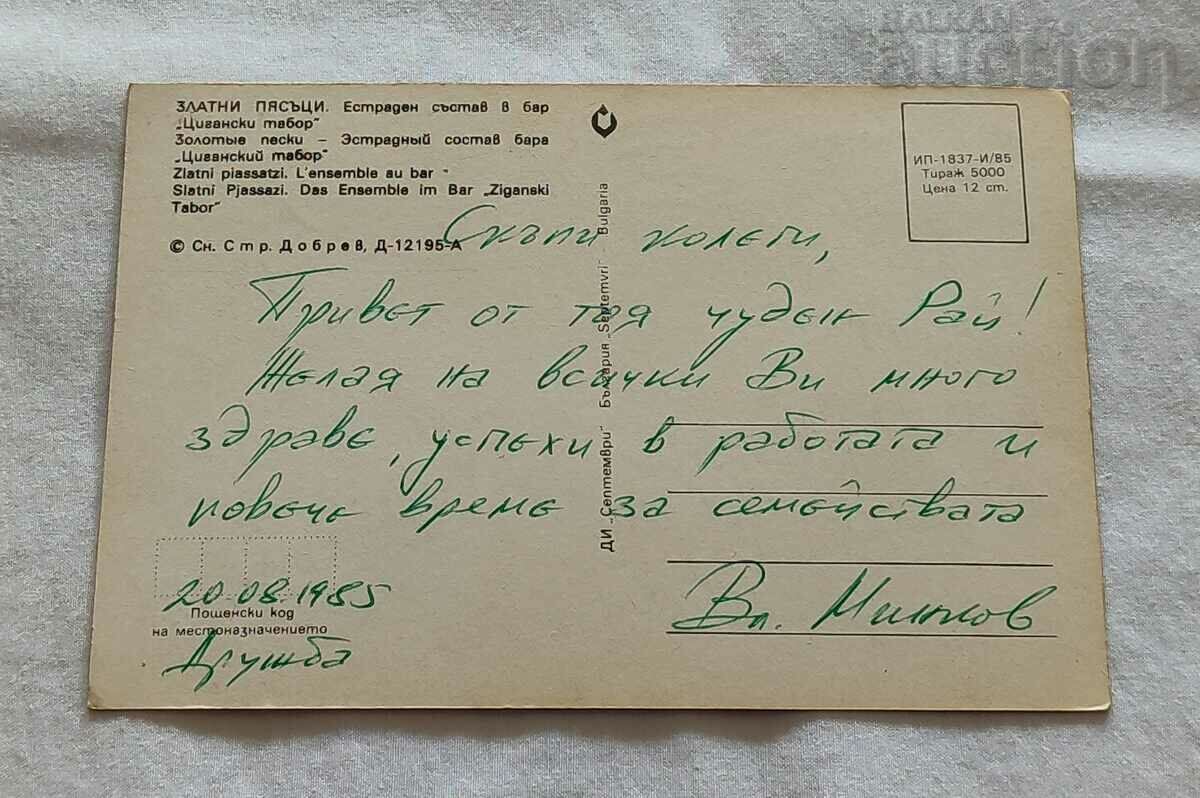 BALKAN
auction
ЗЛАТНИ ПЯСЪЦИ. Естраден състав в бар
„Цигански табор"
Золотые пески – Эстрадный состав бара
„Циганский табор"
Zlatni piassatzi. L'ensemble au bar "
Slatni Pjassazi. Das Ensemble im Bar „Ziganski
Tabor"
© Сн. Стр. Добрев, Д-12195-А
ИП-1837-И/85
Тираж 5000
Цена 12 ст.
ДИ „Септември" България „Septemvri" Bulgaria
Скъпи колеги,
Привет от тоя чуден Рай!
Желая на всички Ви много
здраве, успехи в работата и
повече време за семействата
20.08.1985
Пощенски код
на местоназначението
Дружба
Вл.